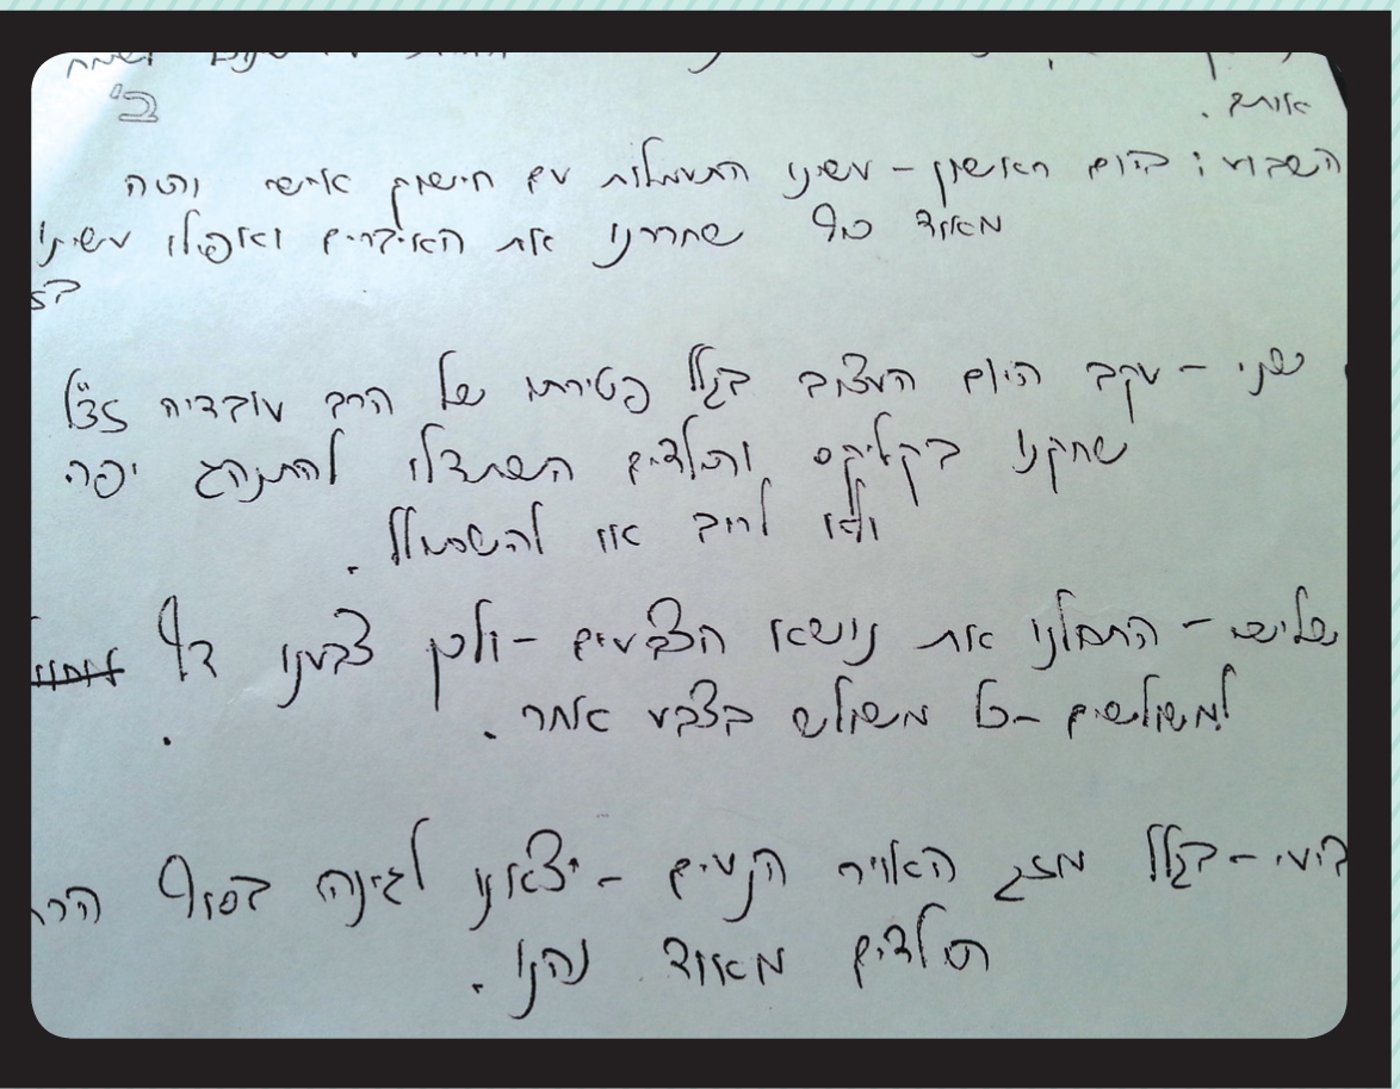 ושמח
אותם.
ב'
השבוע: ביום הראשון - עשינו התעמלות עם חישוק אישי והיה
מאוד כיף שחררנו את האיברים ואפילו עשינו
שני - עקב היום העצוב בגלל פטירתו של הרב עובדיה זצ"ל
שחקנו בקליקס והילדים השתדלו להתנהג יפה
ולא לריב או להשתולל.
שלישי - התחלנו את נושא הצבעים - ולכן צבענו דף
למשולשים - כל משולש בצבע אחר.
ביעי - בגלל מזג האויר הנעים - יצאנו לגינה בסוף
הילדים מאוד נהנו.